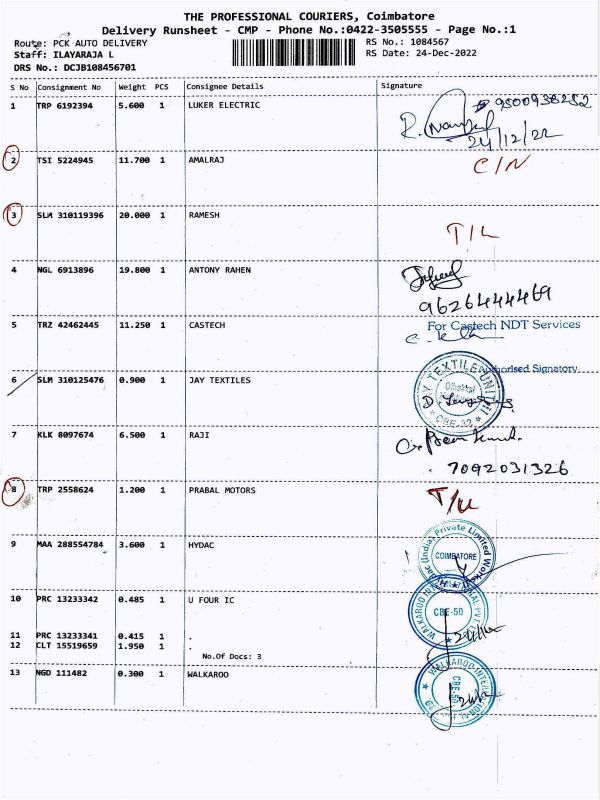 THE PROFESSIONAL COURIERS, Coimbatore
Delivery Runsheet - CMP - Phone No.:0422-3505555 - Page No.:1
Route: PCK AUTO DELIVERY RS No.: 1084567
Staff: ILAYARAJA L RS Date: 24-Dec-2022
DRS No.: DCJB108456701
S No Consignment No Weight PCS Consignee Details Signature
1 TRP 6192394 5.600 1 LUKER ELECTRIC 9500938252
24/12/22
2 TSI 5224945 11.700 1 AMALRAJ C/N
3 SLM 310119396 20.000 1 RAMESH T/L
4 NGL 6913896 19.800 1 ANTONY RAHEN
9626444469
5 TRZ 42462445 11.250 1 CASTECH For Castech NDT Services
Authorised Signatory
6 SLM 310125476 0.900 1 JAY TEXTILES
Y TEXTILE UNIT III
CBE-32
7 KLK 8097674 6.500 1 RAJI
7092031326
8 TRP 2558624 1.200 1 PRABAL MOTORS
9 MAA 288554784 3.600 1 HYDAC
(India) Private Limited Works
COIMBATORE
10 PRC 13233342 0.485 1 U FOUR IC
WALKAROO
CBE-50
11 PRC 13233341 0.415 1 .
12 CLT 15519659 1.950 1 .
No.Of Docs: 3
13 NGD 111482 0.300 1 WALKAROO
WALKAROO
CBE-50